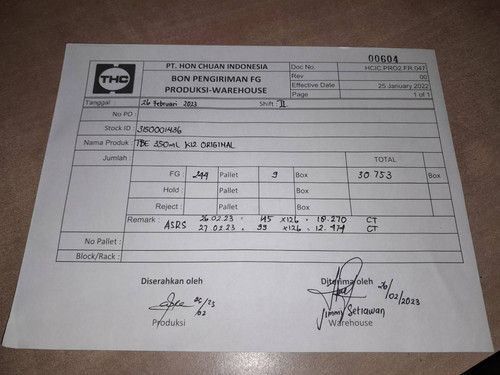 00604
THC
PT. HON CHUAN INDONESIA
BON PENGIRIMAN FG
PRODUKSI-WAREHOUSE
Doc No. HCIC.PRO2.FR.047
Rev 00
Effective Date 25 January 2022
Page 1 of 1
Tanggal : 26 Februari 2023 Shift : II
No PO
Stock ID 3150001436
Nama Produk TBE 350ml K12 ORIGINAL
Jumlah TOTAL
FG : 244 Pallet 9 Box 30.753 Box
Hold : Pallet Box
Reject : Pallet Box
Remark : 26.02.23 = 145 x126 = 18.270 CT
ASRS 27.02.23 = 99 x126 = 12.474 CT
No Pallet :
Block/Rack :
Diserahkan oleh Diterima oleh
26/02/23 26/02/2023
Jimmy Setiawan
Produksi Warehouse